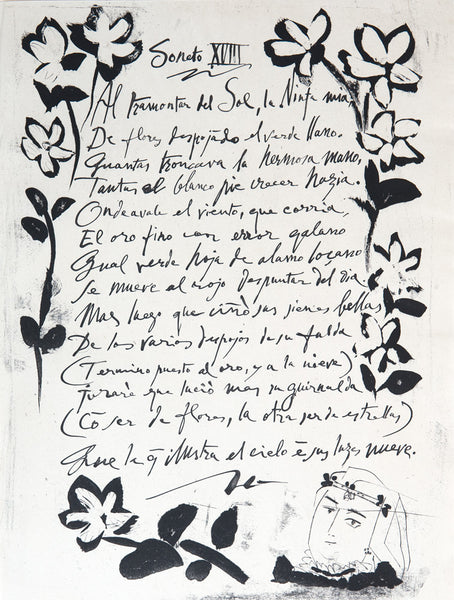 Soneto XVIII
Al tramontar del Sol, la Ninfa mia
De flores despojado el verde llano.
Quantas troncava la hermosa mano,
Tantas el blanco pie crecer hazia.
Ondeavale el viento, que corria,
El oro fino con error galano
Qual verde hoja de alamo loçano
Se mueve al rojo despuntar del dia
Mas luego que ciñó sus sienes bellas
De los varios despojos de su falda
(Termino puesto al oro, y a la nieve)
juraré que lució mas su guirnalda
(Cō ser de flores, la otra ser de estrellas)
Que la q̄ illustra el cielo ē sus luzes nueve.